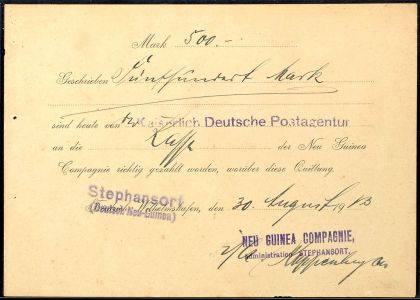 Mark 500.-
Geschrieben Fünfhundert Mark
sind heute von der Kaiserlich Deutsche Postagentur
an die Kasse der Neu Guinea
Compagnie richtig gezahlt worden, worüber diese Quittung.
Stephansort
(Deutsch Neu-Guinea)
Wilhelmshafen, den 30 August 19
NEU GUINEA COMPAGNIE,
Administration STEPHANSORT.